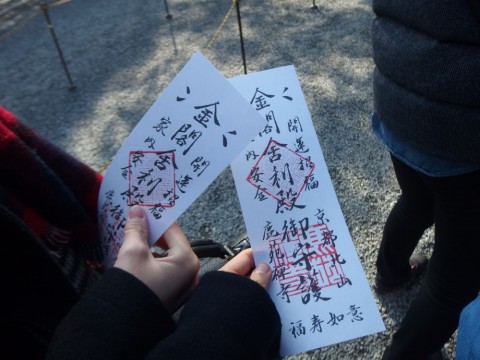 金閣舎利殿
開運招福
家内安全
金閣舎利殿御守護
開運招福
家内安全
京都北山
鹿苑禅寺
福寿如意